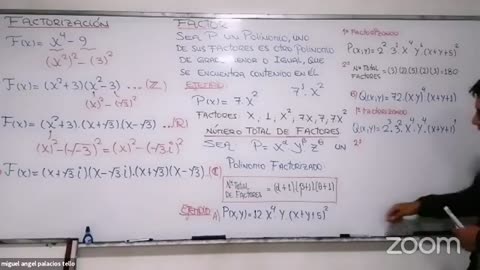 FACTORIZACIÓN
F(x) = x⁴ - 9
(x²)² - (3)²
F(x) = (x²+3)(x²-3) ... (ℤ)
(x)² - (√3)²
F(x) = (x²+3).(x+√3)(x-√3) ... (ℝ)
(x)² - (√-3)² = (x)² - (√3i)²
F(x) = (x+√3i)(x-√3i).(x+√3)(x-√3). (ℂ)
FACTOR
SEA P UN POLINOMIO, UNO
DE SUS FACTORES ES OTRO POLINOMIO
DE GRADO MENOR O IGUAL, QUE
SE ENCUENTRA CONTENIDO EN ÉL
EJEMPLO: 7¹.X²
P(x) = 7.X²
FACTORES: X, 1, X², 7X, 7, 7X²
NÚMERO TOTAL DE FACTORES:
SEA: P = X^α Y^β Z^θ UN
POLINOMIO FACTORIZADO
Nº TOTAL DE FACTORES = (α+1)(β+1)(θ+1)
EJEMPLO A) P(x,y) = 12 X⁴ Y.(x+y+5)²
1º FACTORIZANDO
P(x,y) = 2².3¹.X⁴.Y¹.(x+y+5)²
2º Nº TOTAL FACTORES = (3)(2)(5)(2)(3) = 180
B) Q(x,y) = 72.(x⁴y⁴).(x+y+1)
1º FACTORIZANDO
Q(x,y) = 2³.3².X⁴.Y⁴.(x+y+1)¹
zoom
miguel angel palacios tello